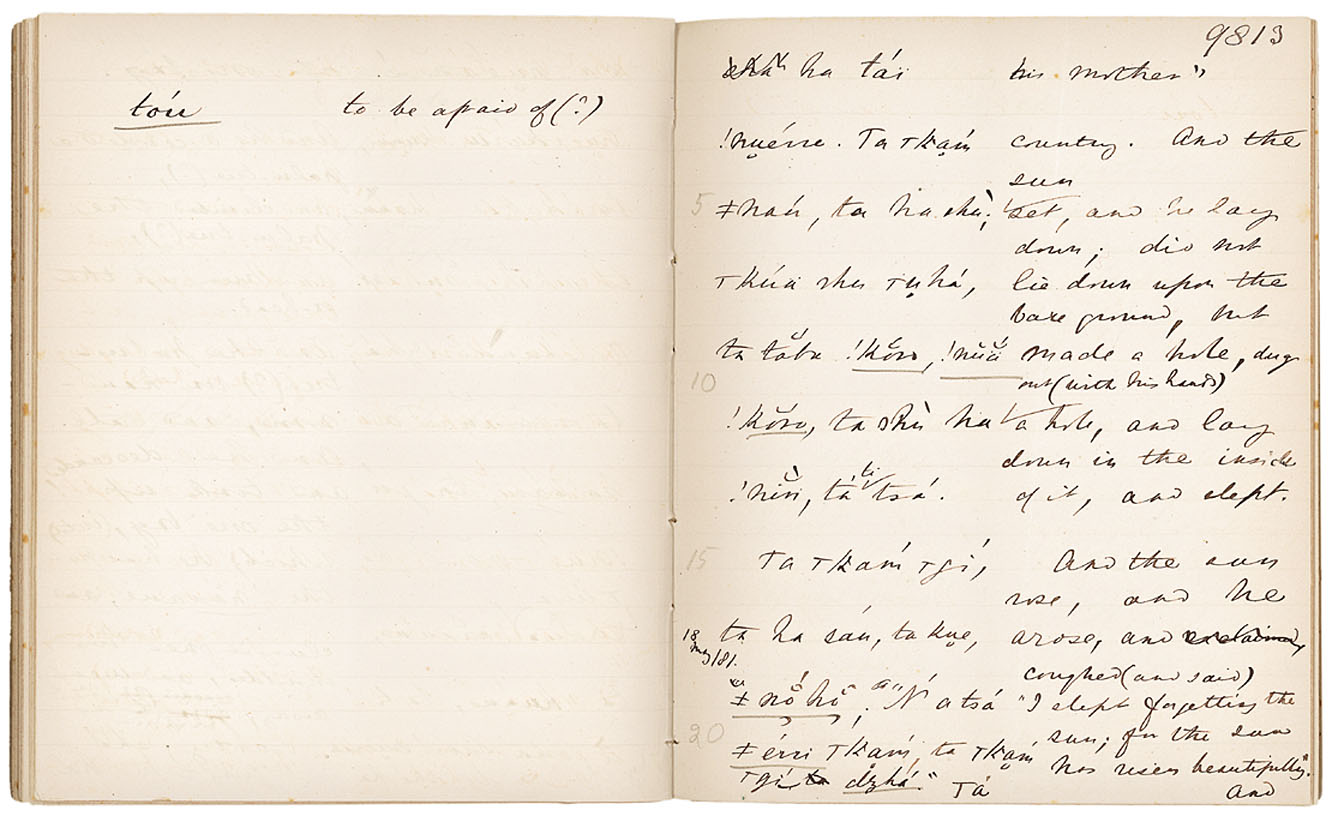 tóu to be afraid of (?)
9813
ha tái his mother's
!nuérre. Ta τkam country. And the
sun
5 ǂnaú, ta ha shù; set, and he lay
down; did not
τkúä shu τuhá, lie down upon the
bare ground, but
ta tăba !kŏro, !nŭä made a hole, dug
10 out (with his hands)
!kŏro, ta shù ha a hole, and lay
down in the inside
!niŭi, tá tsá. of it, and slept.
15 Ta τkam τgí, And the sun
rose, and he
18 ta ha saú, ta kue, arose, and exclaimed,
May/81. coughed (and said)
ǂnŏhŏ, "Ń a tsá "I slept forgetting the
20 sun; for the sun
ǂérri τkam, ta τkam has risen beautifully".
τgí ta dzhá." Tá And